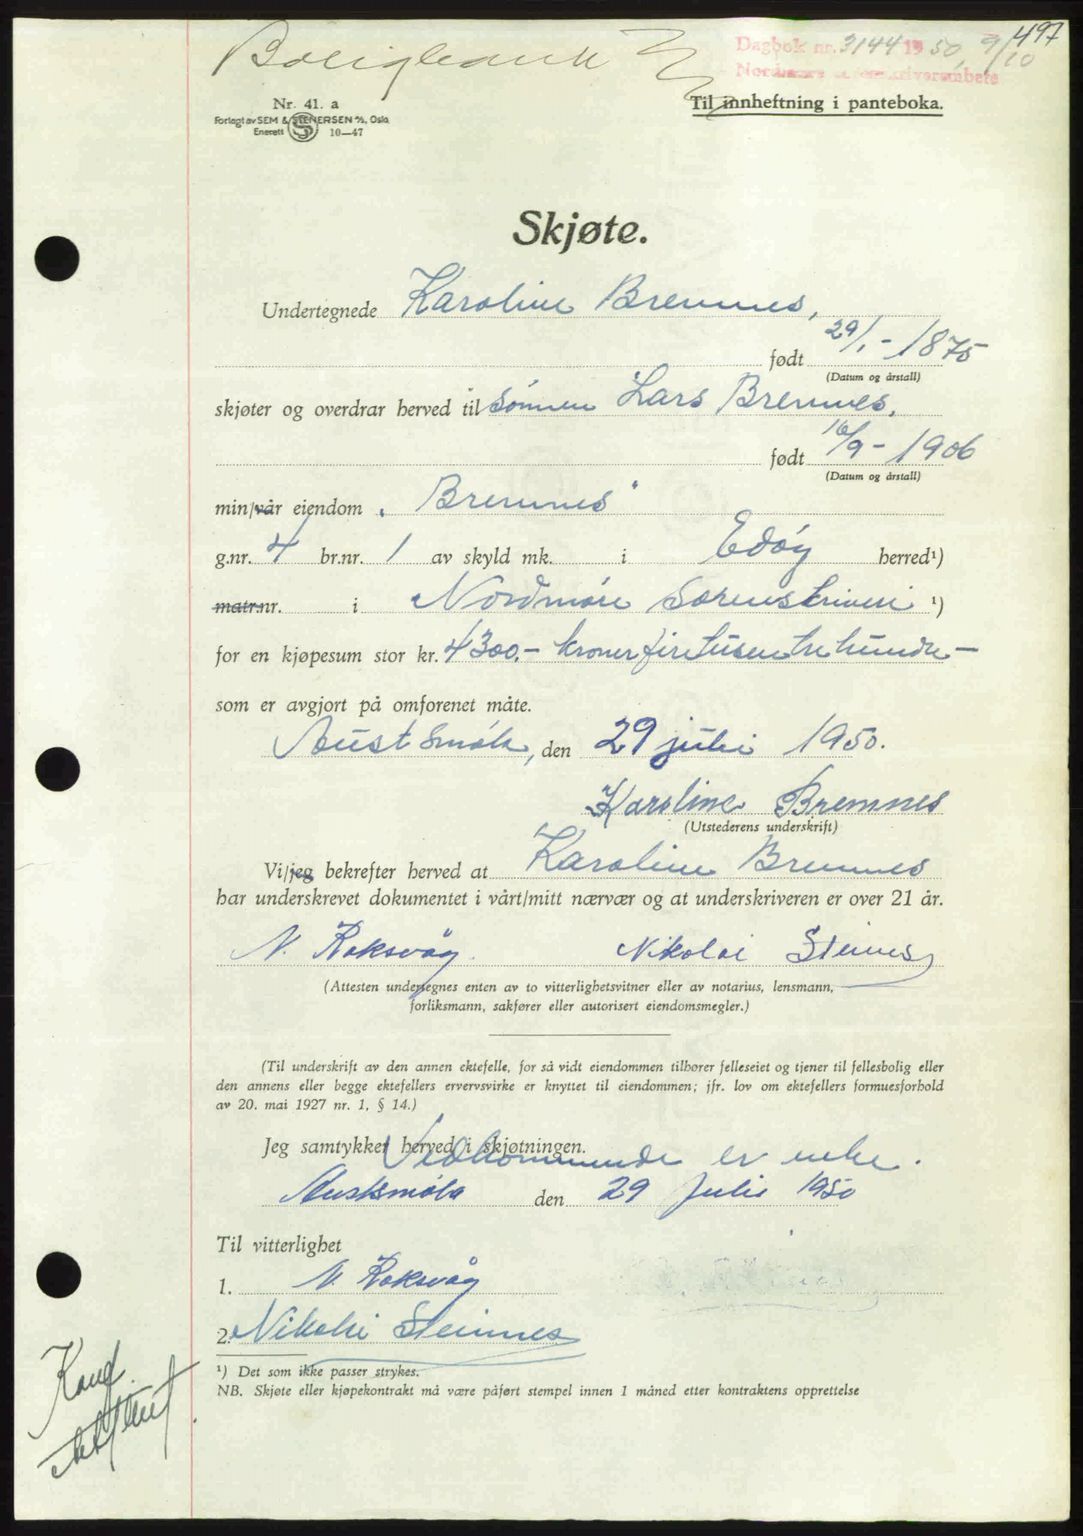 497
Boligbank
Dagbok nr. 3144 1950, 9/10
Nordmøre sorenskriverembete
Nr. 41. a
Til innheftning i panteboka.
Forlagt av SEM & STENERSEN A/S, Oslo
Enerett S 10—47
Skjøte.
Undertegnede Karoline Bremnes,
født 29/1 - 1875
(Datum og årstall)
skjøter og overdrar herved til sønnen Lars Bremnes,
født 16/9 - 1906
(Datum og årstall)
min/vår eiendom „Bremnes"
g.nr. 4 br.nr. 1 av skyld mk. i Edøy herred¹)
matr.nr. i Nordmøre Sorenskriveri ¹)
for en kjøpesum stor kr. 4300,- kroner firetusentrehundre—
som er avgjort på omforenet måte.
Aust Smøla, den 29 juli 1950.
Karoline Bremnes
(Utstederens underskrift)
Vi/jeg bekrefter herved at Karoline Bremnes
har underskrevet dokumentet i vårt/mitt nærvær og at underskriveren er over 21 år.
N. Roksvåg. Nikolai Steinnes
(Attesten undertegnes enten av to vitterlighetsvitner eller av notarius, lensmann,
forliksmann, sakfører eller autorisert eiendomsmegler.)
(Til underskrift av den annen ektefelle, for så vidt eiendommen tilhører felleseiet og tjener til fellesbolig eller
den annens eller begge ektefellers ervervsvirke er knyttet til eiendommen; jfr. lov om ektefellers formuesforhold
av 20. mai 1927 nr. 1, § 14.)
Jeg samtykker herved i skjøtningen.
Vedkommende er enke.
Austsmøla den 29 Juli 1950
Til vitterlighet
1. N. Roksvåg
2. Nikolai Steinnes
¹) Det som ikke passer strykes.
NB. Skjøte eller kjøpekontrakt må være påført stempel innen 1 måned etter kontraktens opprettelse